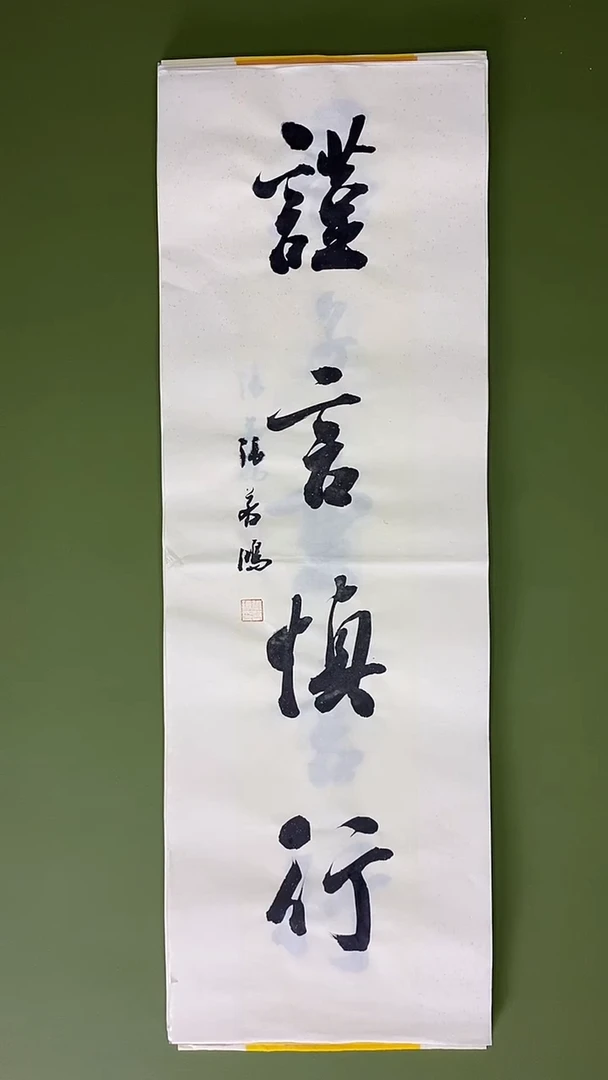 謹言慎行
張若鴻